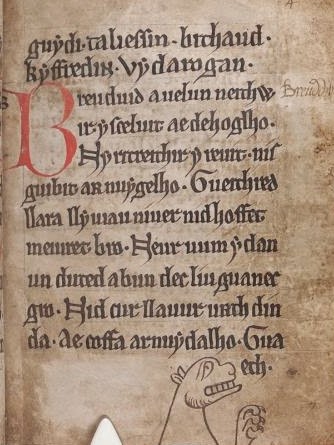 guydi. taliessin. bithaud.
kyffredin. vy darogan.
Breuduid a uelun neithw
ir ys celuit ae dehoglho.
Ny ritreithir y reuit. nis
guibit ar nuy gelho. Gueithred
llara llyuiau niuer nid hoffet
meuret bro. Neur uum y dan
un duted a bun dec liu guanec
gro. Nid cur llauur urth din
da. Ae coffa ar nuy dalho. Gua
ech.